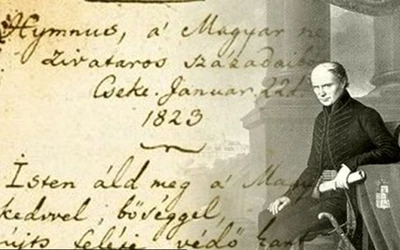 Hymnus, a' Magyar ne
zivataros századaibó
Cseke. Januar. 22d.
1823
Isten áld meg a' Magy
kedvvel, bőséggel,
újts feléje védő kart